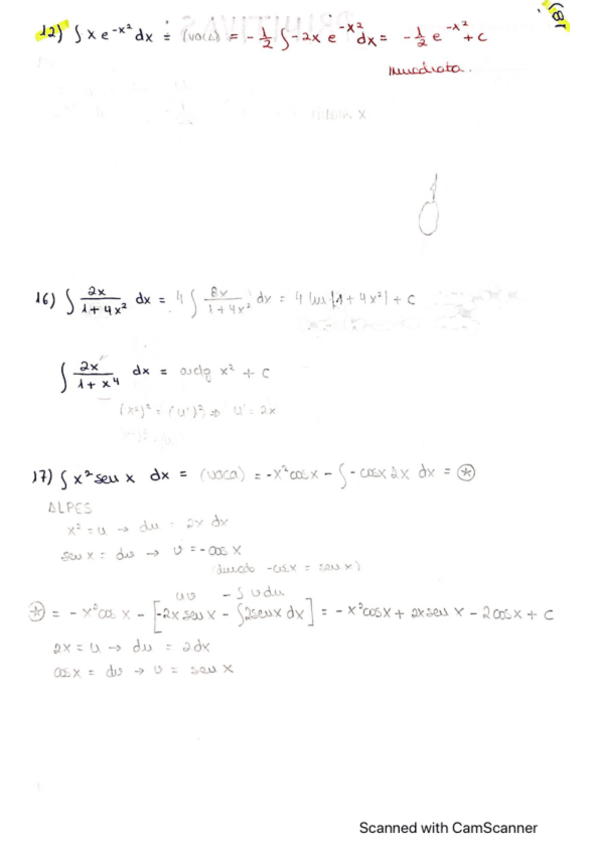 12) ∫ x e^{-x²} dx = (vaca) = -1/2 ∫ -2x e^{-x²} dx = -1/2 e^{-x²} + C
Inmediata.
16) ∫ 2x/(1+4x²) dx = 4 ∫ 8x/(1+4x²) dx = 4 ln |1+4x²| + C
∫ 2x/(1+x⁴) dx = arctg x² + C
(x²)² = (u')² ⇒ u' = 2x
17) ∫ x² sen x dx = (vaca) = -x² cos x - ∫ -cos x 2x dx = ⊛
ALPES
x² = u → du = 2x dx
sen x = dv → v = -cos x
-cos x = sen x)
uv - ∫ v du
⊛ = -x² cos x - [-2x sen x - ∫ 2 sen x dx] = -x² cos x + 2x sen x - 2 cos x + C
2x = u → du = 2dx
cos x = dv → v = sen x
Scanned with CamScanner